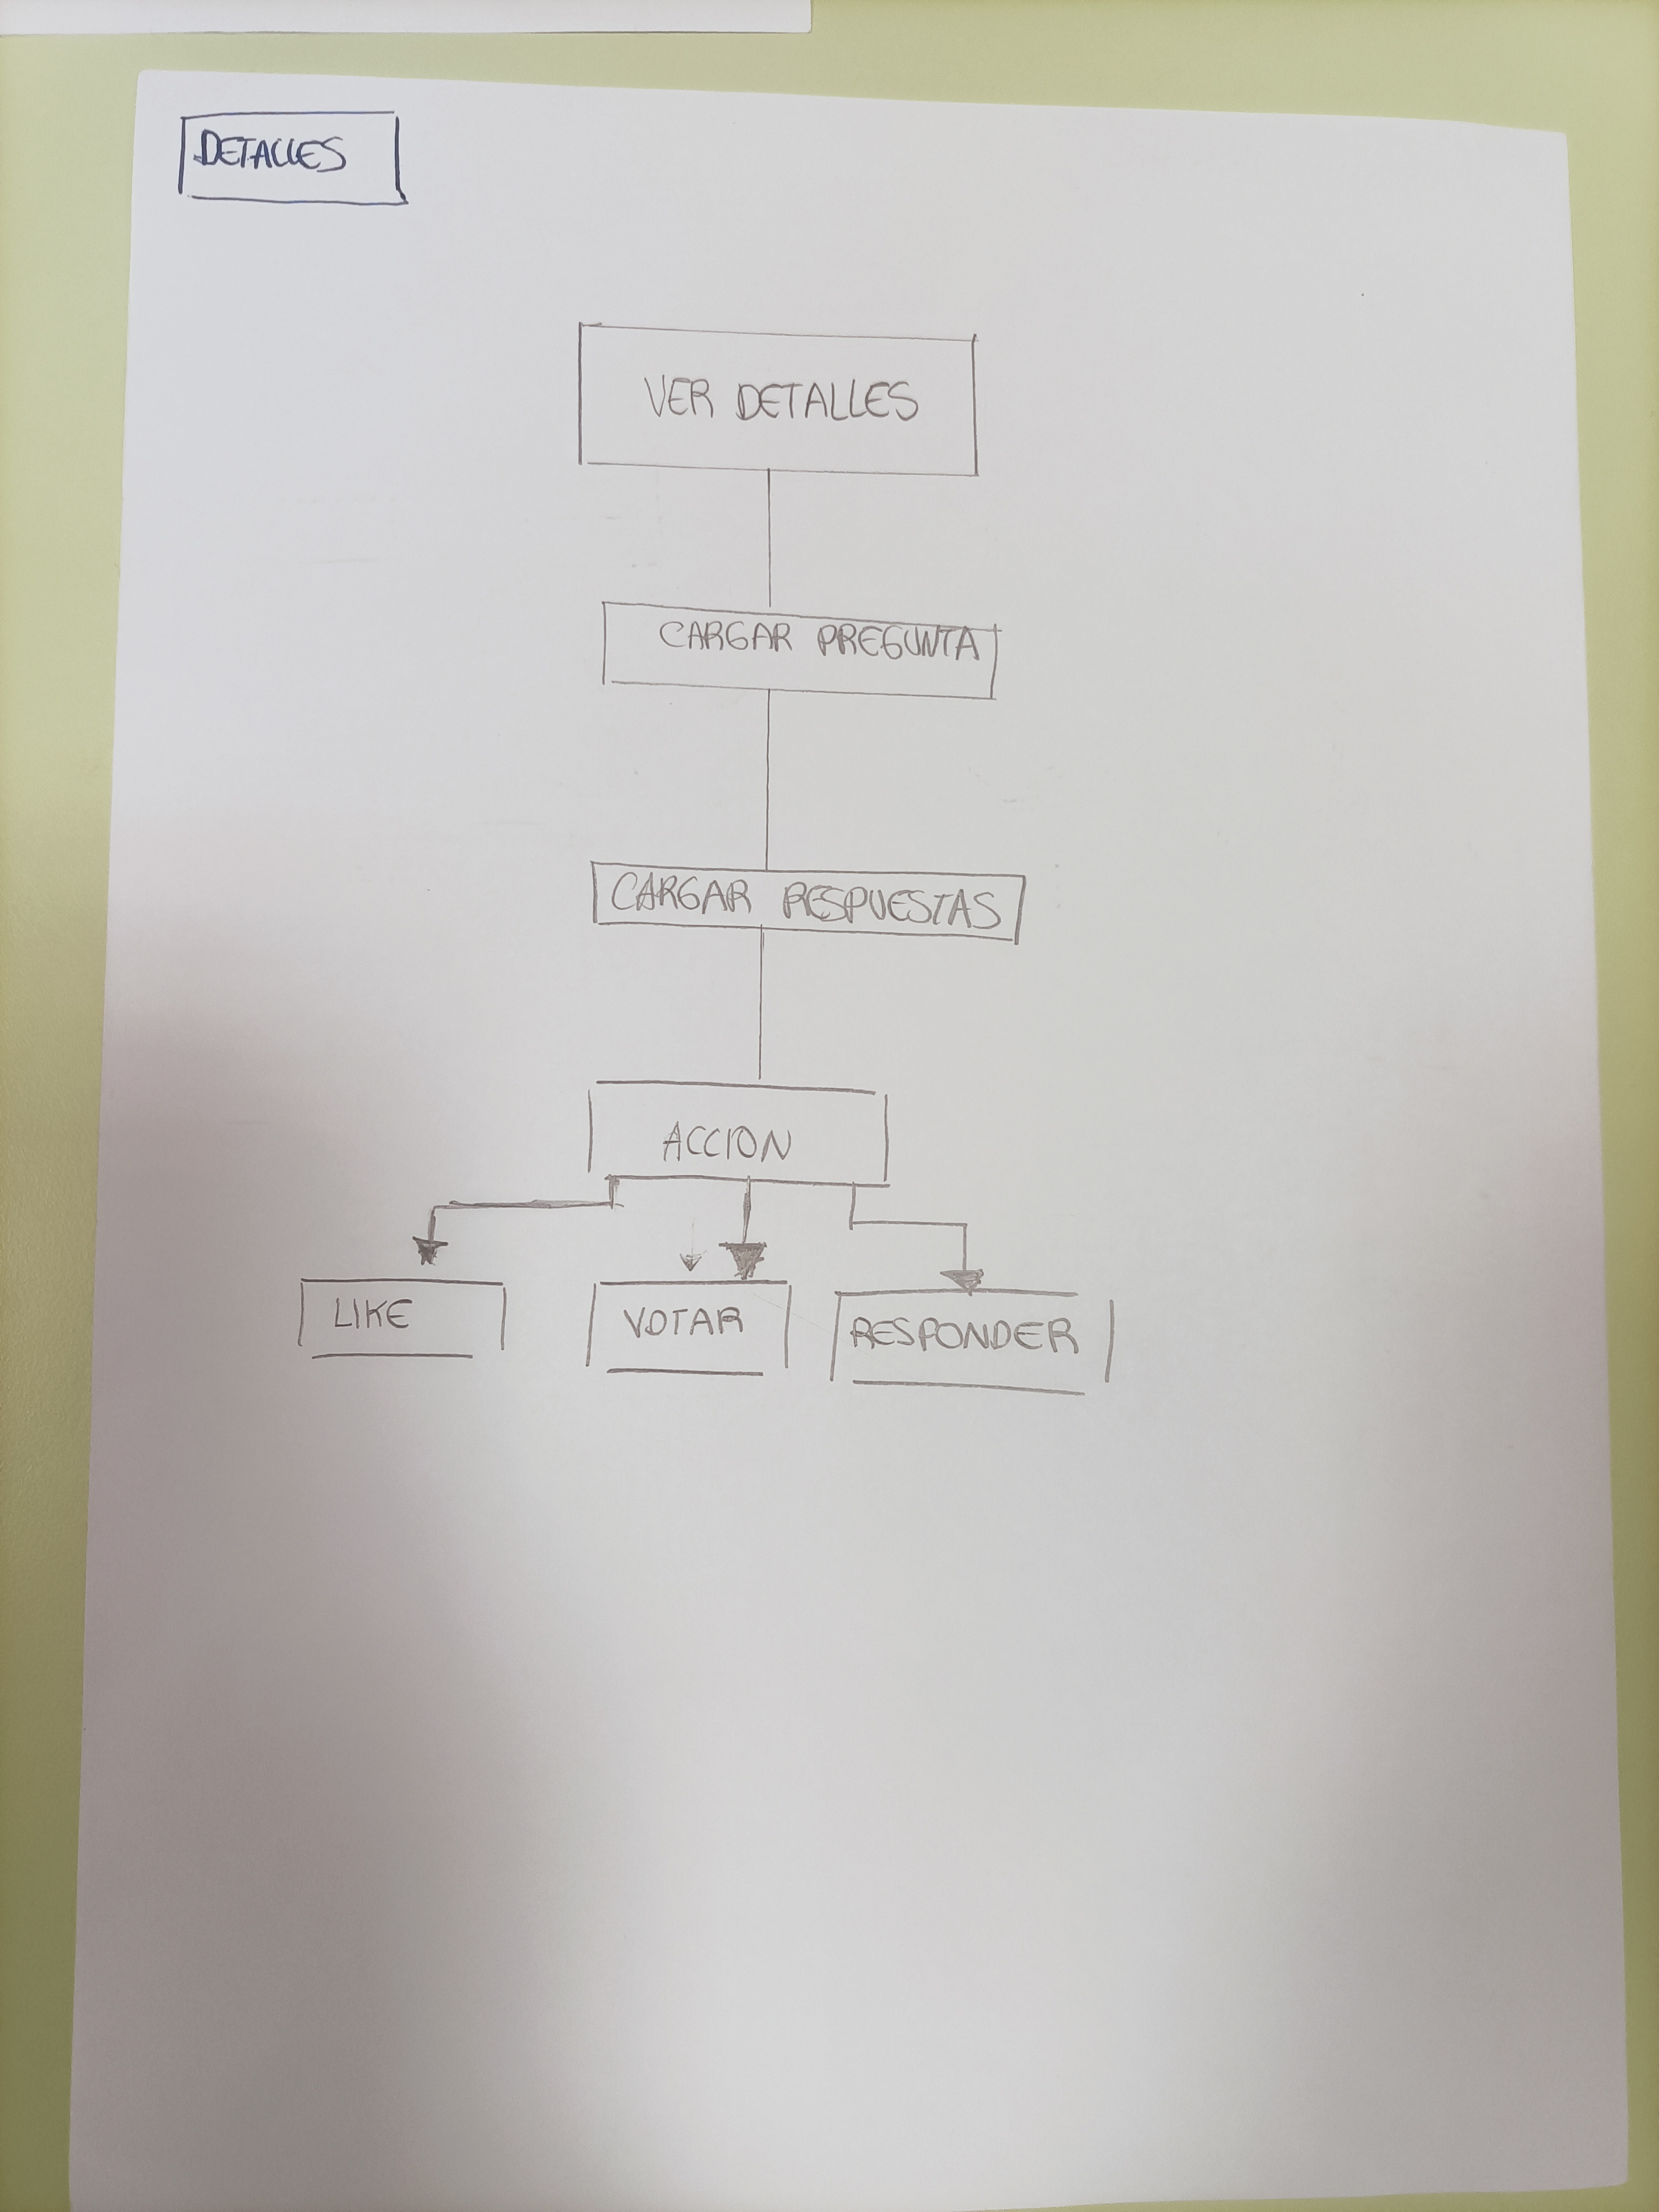 DETALLES
VER DETALLES
CARGAR PREGUNTA
CARGAR RESPUESTAS
ACCION
LIKE
VOTAR
RESPONDER